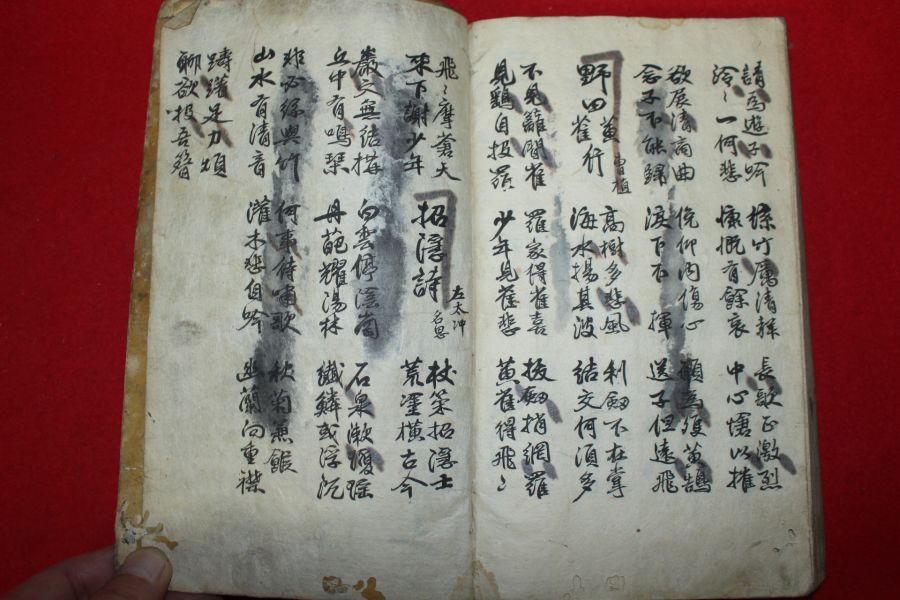 請為遊子吟
泠〻一何悲
絲竹厲清聲
慷慨有餘哀
長歌正激烈
中心愴以摧
欲展清商曲
念子不能歸
俛仰內傷心
淚下不揮
願為雙黃鵠
送子但遠飛
野田黃雀行
曹植
高樹多悲風
海水揚其波
利劒不在掌
結交何須多
不見籬間雀
見鷂自投羅
羅家得雀喜
少年見雀悲
拔劒捎網羅
黃雀得飛〻
飛〻摩蒼天
來下謝少年
招隱詩
左太冲
名思
杖策招隱士
荒塗橫古今
巖穴無結構
丘中有鳴琴
白雲停陰岡
丹葩耀湯林
石泉漱瓊瑤
纖鱗或浮沉
非必絲與竹
山水有清音
何事待嘯歌
灌木悲自吟
秋菊兼餱
幽蘭間重襟
躊躇足力煩
聊欲投吾簪